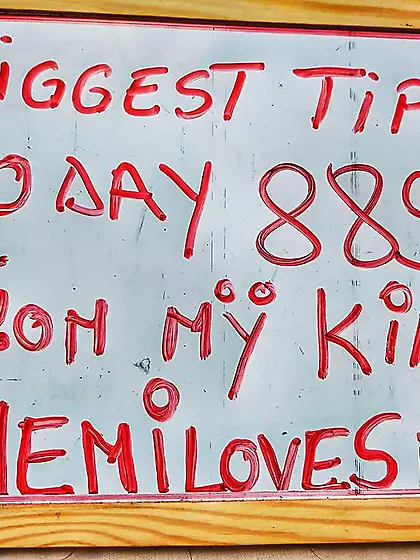 iGGEST TiP
ODAY 888
OH MŸ Ki
EMiLOVES